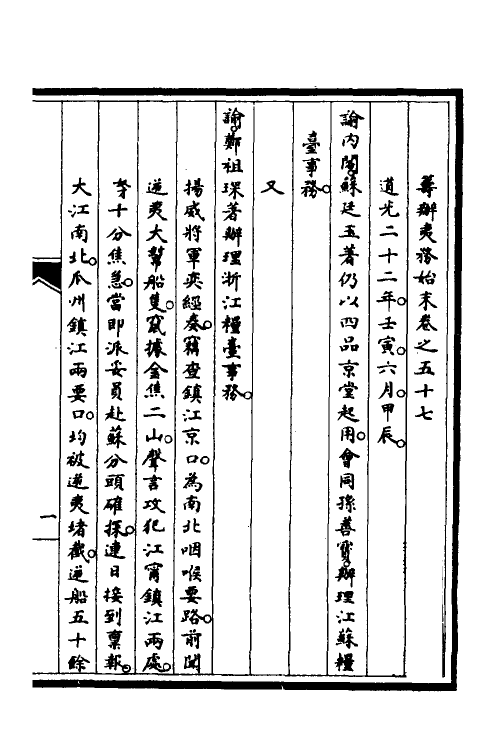 籌辦夷務始末卷之五十七
道光二十二年。壬寅。六月。甲辰。
諭內閣。蘇廷玉著仍以四品京堂起用。會同孫善寶。辦理江蘇糧
臺事務。
又
諭。鄭祖琛著辦理浙江糧臺事務。
揚威將軍奕經奏。竊查鎮江京口。為南北咽喉要路。前聞
逆夷大幫船隻。竄據金焦二山。聲言攻犯江甯鎮江兩處。
李十分焦急。當即派妥員赴蘇分頭確探。連日接到稟報。
大江南北。瓜州鎮江兩要口。均被逆夷堵截。逆船五十餘
一